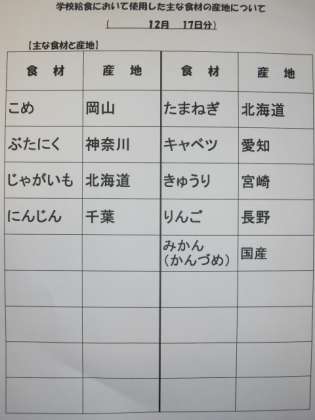 学校給食において使用した主な食材の産地について
(　　　12月　17日分)
【主な食材と産地】
食　材　産　地　食　材　産　地
こめ　岡山　たまねぎ　北海道
ぶたにく　神奈川　キャベツ　愛知
じゃがいも　北海道　きゅうり　宮崎
にんじん　千葉　りんご　長野
みかん
(かんづめ)　国産